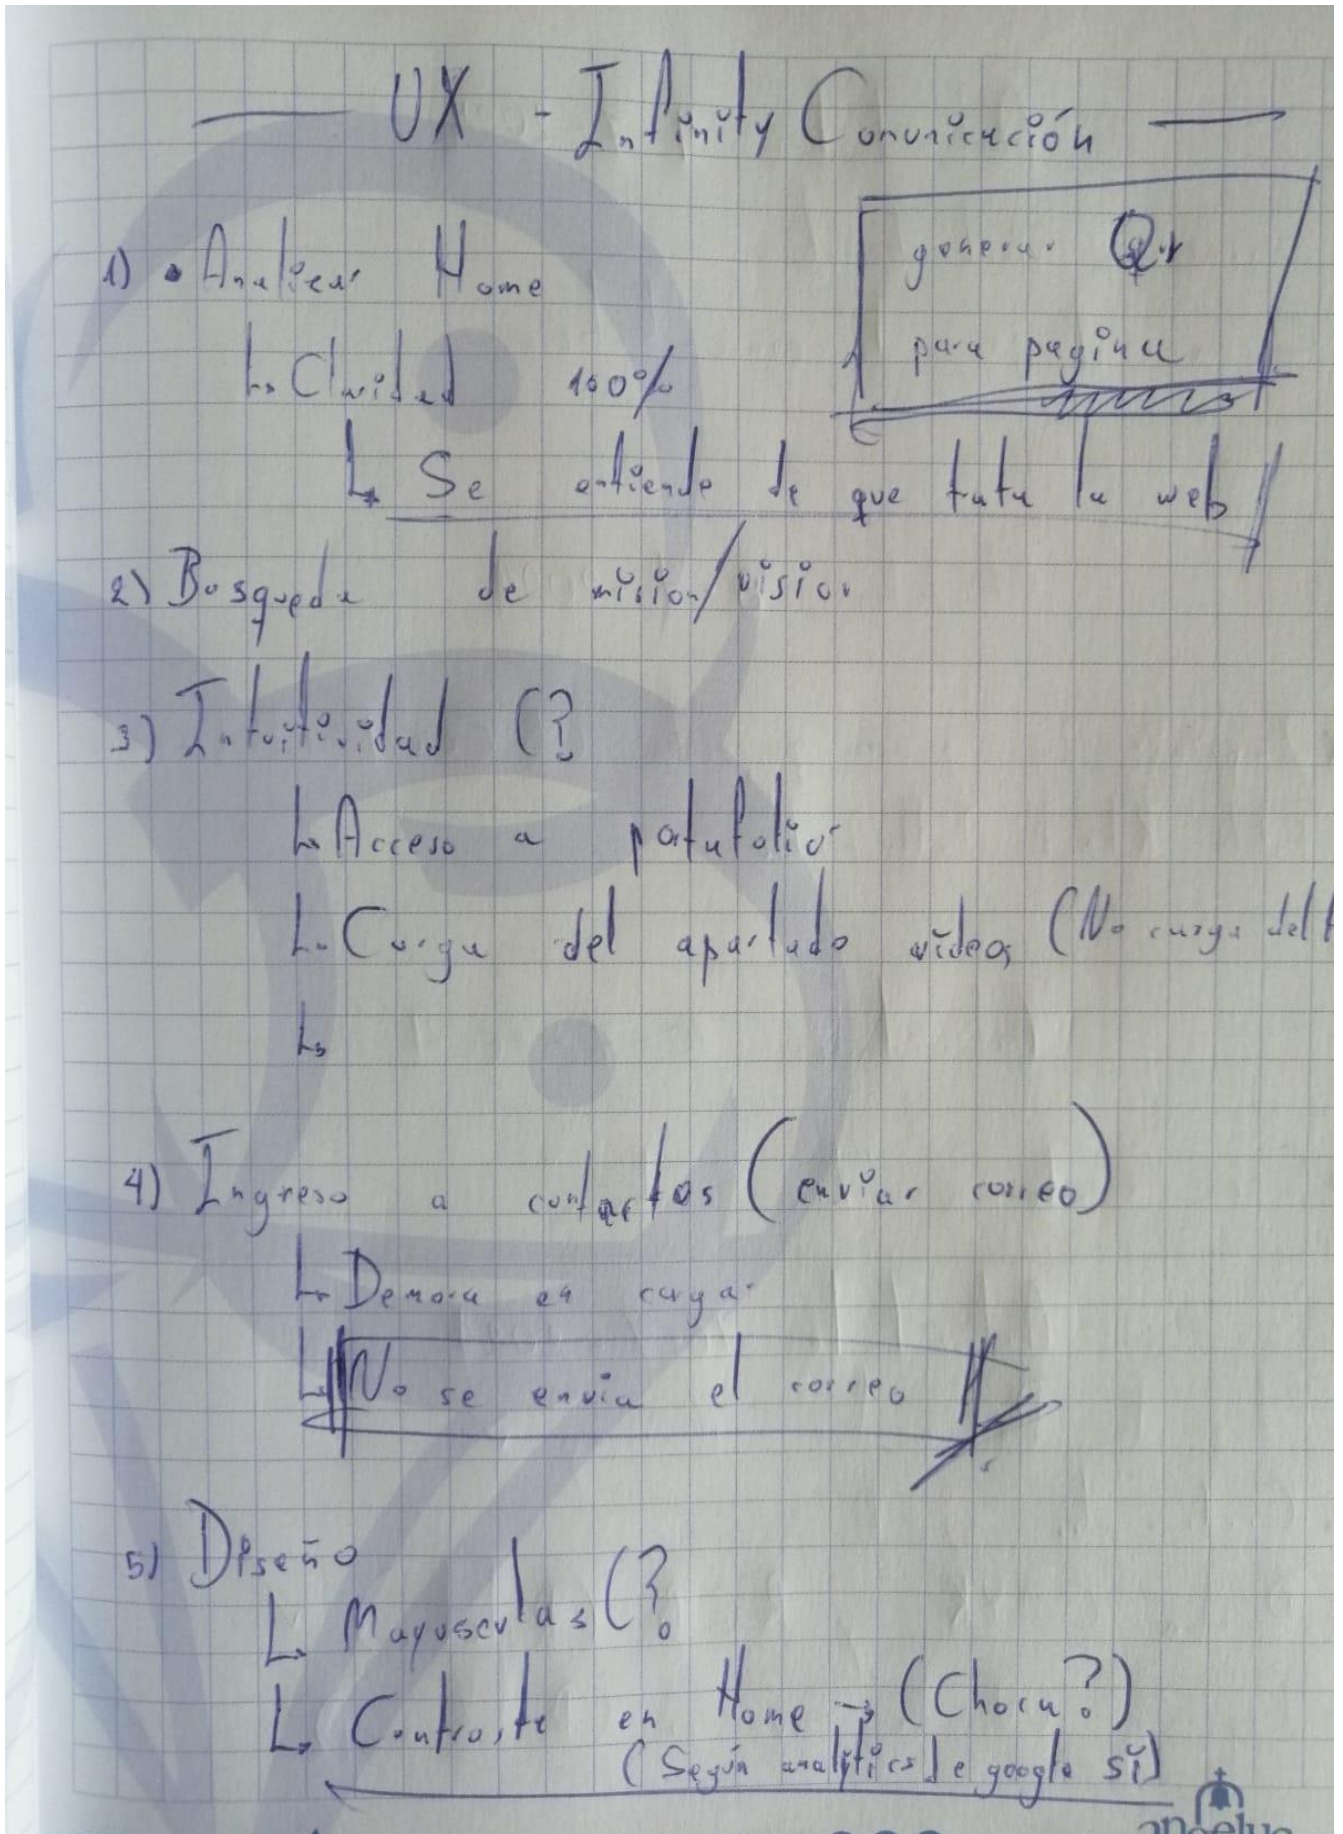 UX - Infinity Comunicación
generar Qr
para pagina
1) • Analizar Home
Claridad 100%
Se entiende de que trata la web
2) Busqueda de mision/vision
3) Intuitividad (?
Acceso a portafolio
Carga del apartado videos (No carga del
4) Ingreso a contactos (enviar correo)
Demora en cargar
No se envia el correo
5) Diseño
Mayusculas (?
Contraste en Home → (Choca?)
(Según analytics de google sí)
angelus